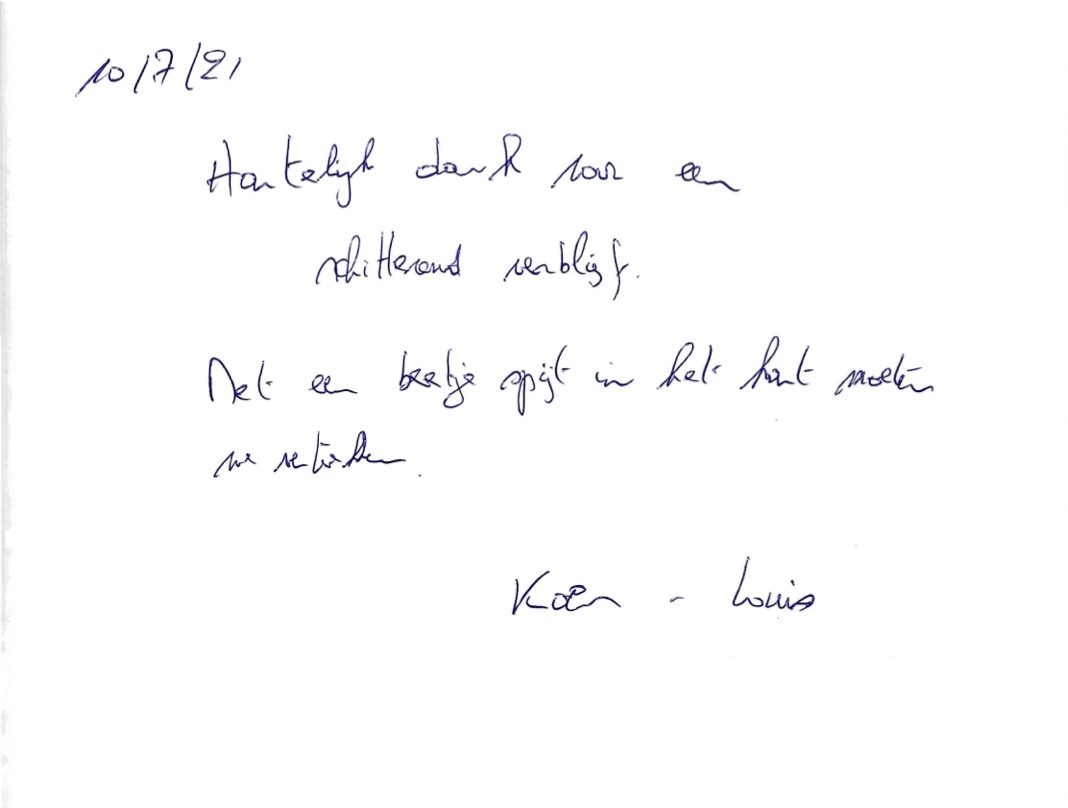 10/7/21
Hartelijk dank voor een
schitterend verblijf.
Met een beetje spijt in het hart moeten
we vertrekken.
Koen - Louis